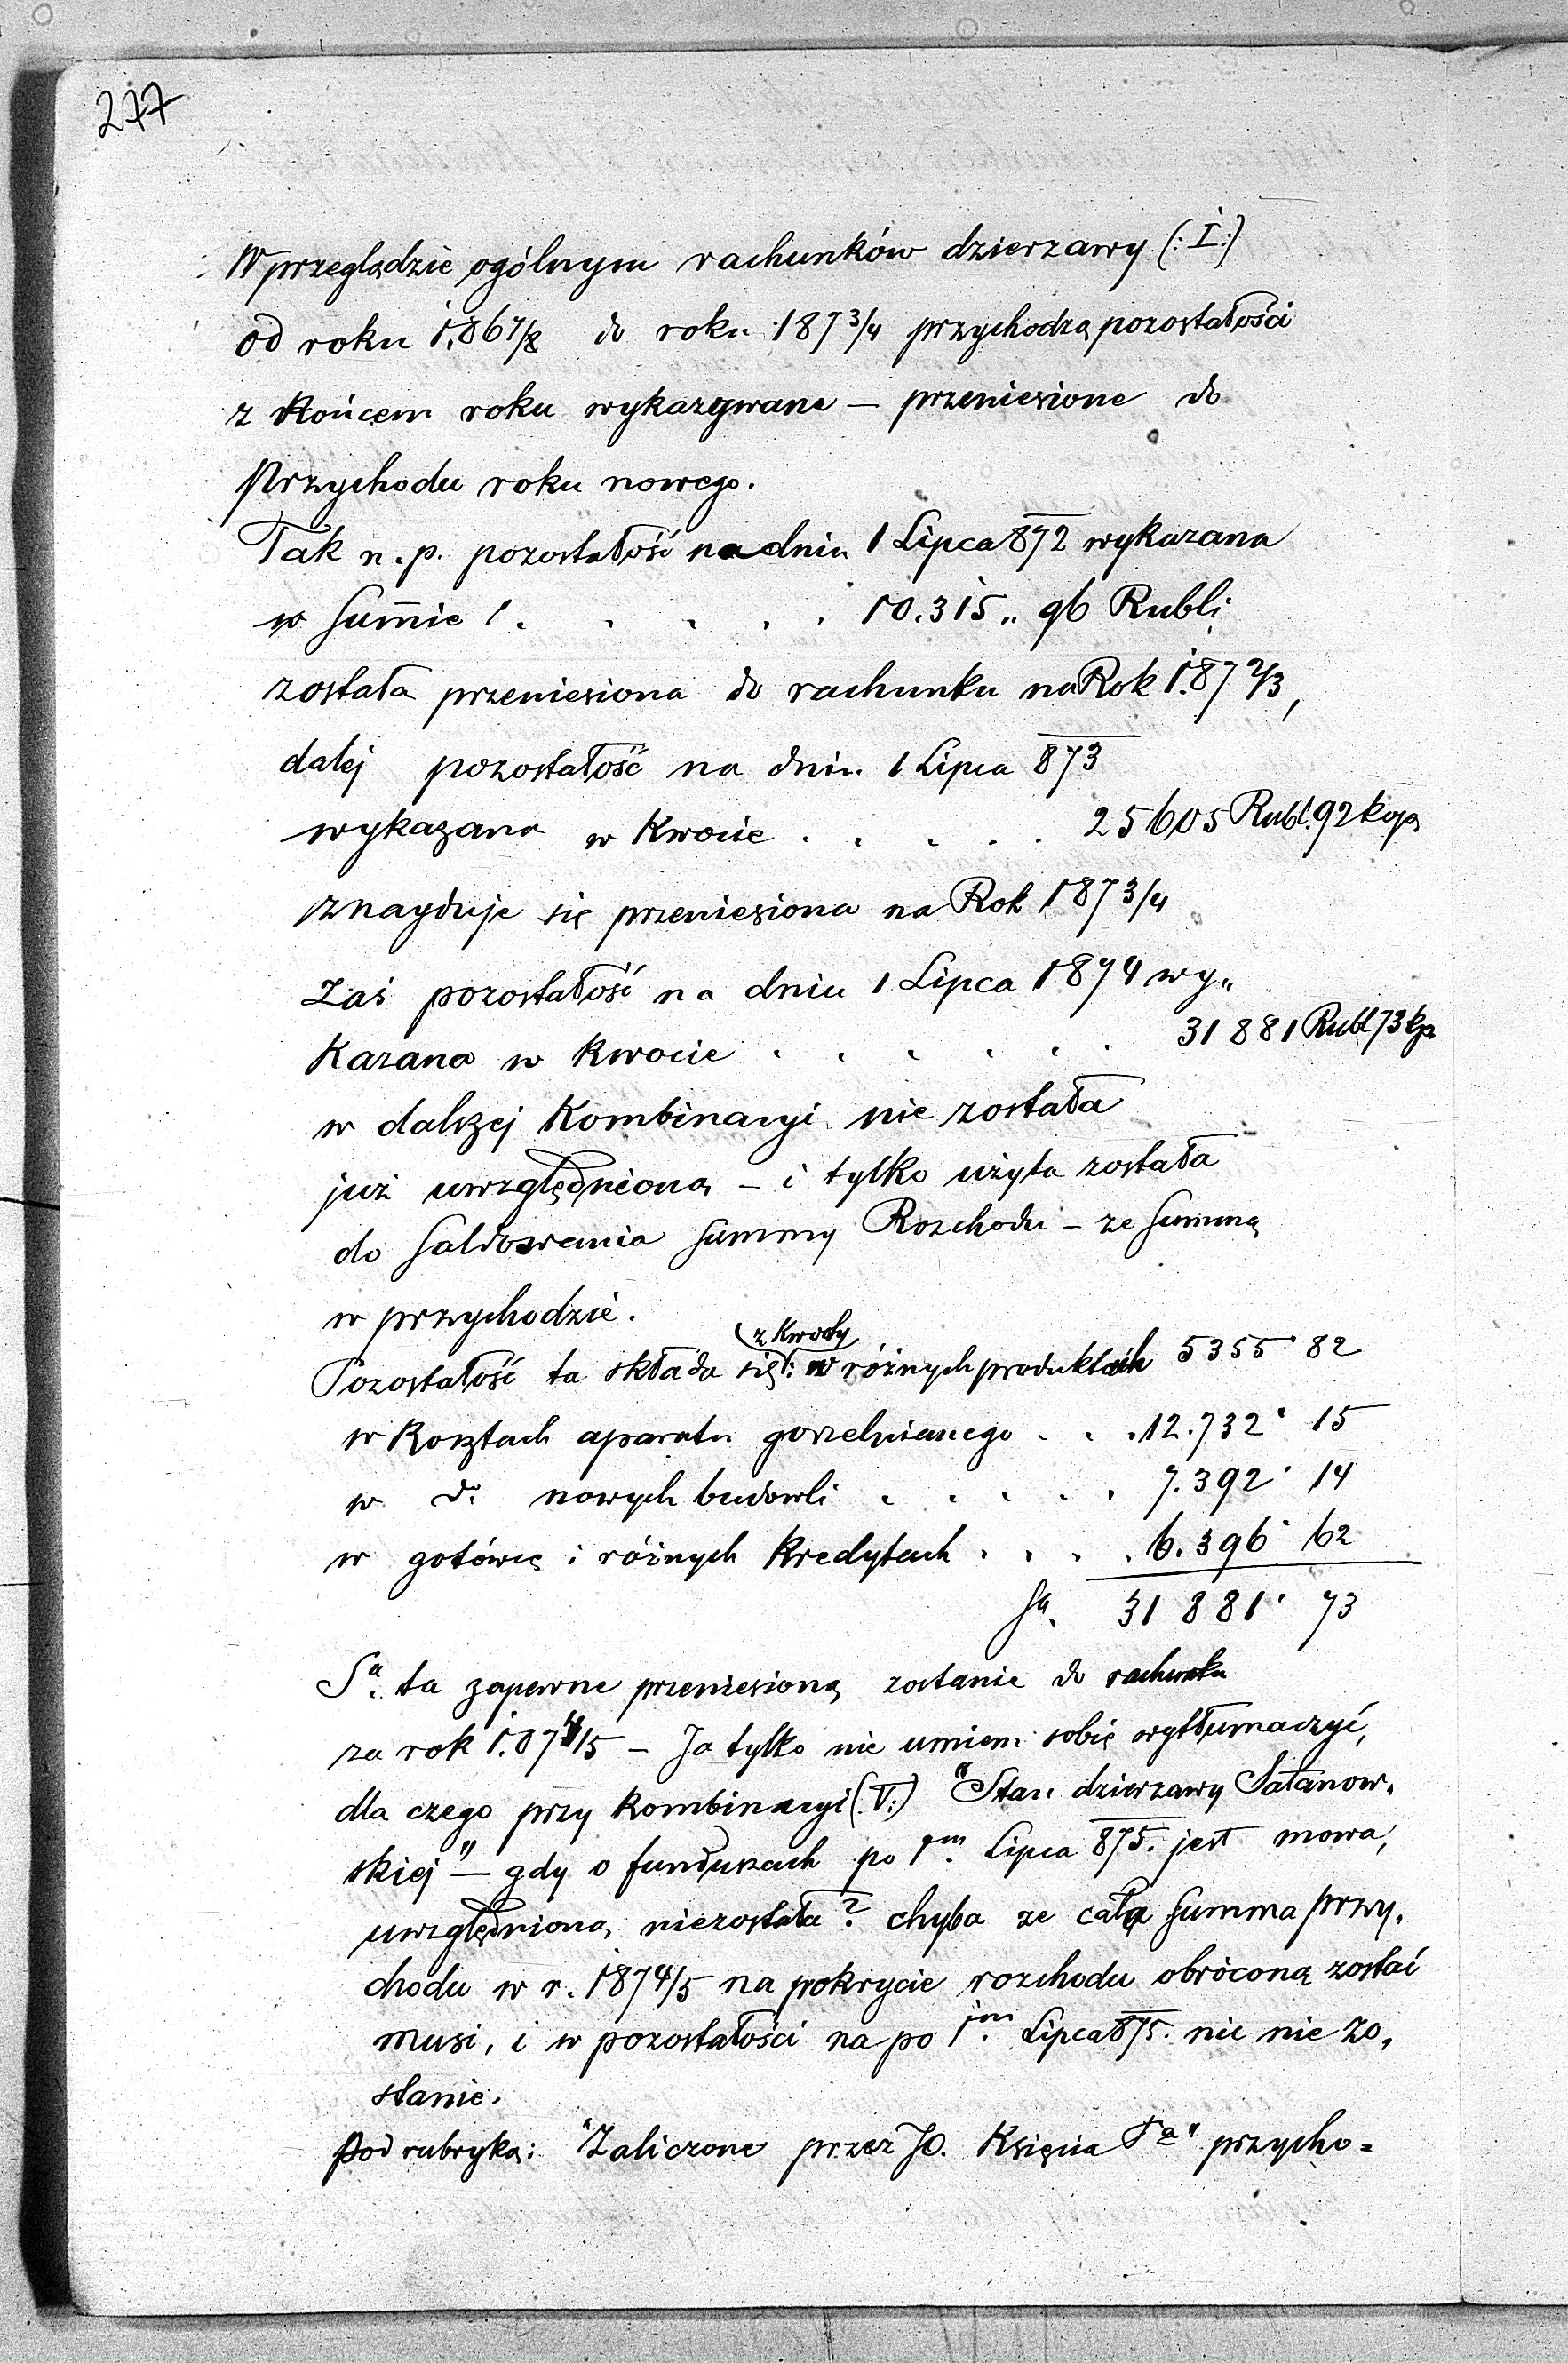 277
W przeglądzie ogólnym rachunków dzierzawy (: I :)
od roku 1.867/8 do roku 1873/4 przychodzą pozostałości
z końcem roku wykazywane — przeniesione do
Przychodu roku nowego.
Tak n.p. pozostałość na dniu 1 Lipca 872 wykazana
w Sum̄ie . . . . . 10.315 „ 96 Rubli
została przeniesiona do rachunku na Rok 1.872/3,
dalej pozostałość na dniu 1 Lipca 873
wykazana w Kwocie . . . . . 25605 Rubl. 92 kop
znayduje się przeniesiona na Rok 1873/4
Zaś pozostałość na dniu 1 Lipca 1874 wy„
Kazana w Kwocie . . . . . . 31881 Rubl 73 kp
w dalszej Kombinacyi nie została
już uwzględnioną — i tylko użyta została
do Saldowania Summy Rozchodu — ze Summą
w przychodzie.
z Kwoty
Pozostałość ta składa się: w różnych produktach 5355 " 82
w Kosztach aparatu gorzelnianego . . . 12.732 " 15
w do nowych budowli . . . . . 7.392 " 14
w gotówce i różnych Kredytach . . . . 6.396 " 62
Sa. 31881 " 73
Sa. ta zapewne przeniesioną zostanie do rachunku
za rok 1.874/5 — Ja tylko nie umiem sobie wytłumaczyć,
dla czego przy Kombinacyi (: V :) "Stan dzierzawy Satanow„
skiej" — gdy o funduszach po 1m. Lipca 875. jest mowa,
uwzględnioną niezostała? chyba ze cała Summa przy„
chodu w r. 1874/5 na pokrycie rozchodu obróconą zostać
musi, i w pozostałości na po 1ym. Lipca 875. nic nie zo„
stanie.
Pod rubryką: "Zaliczone przez JO. Księcia Pa" przycho=